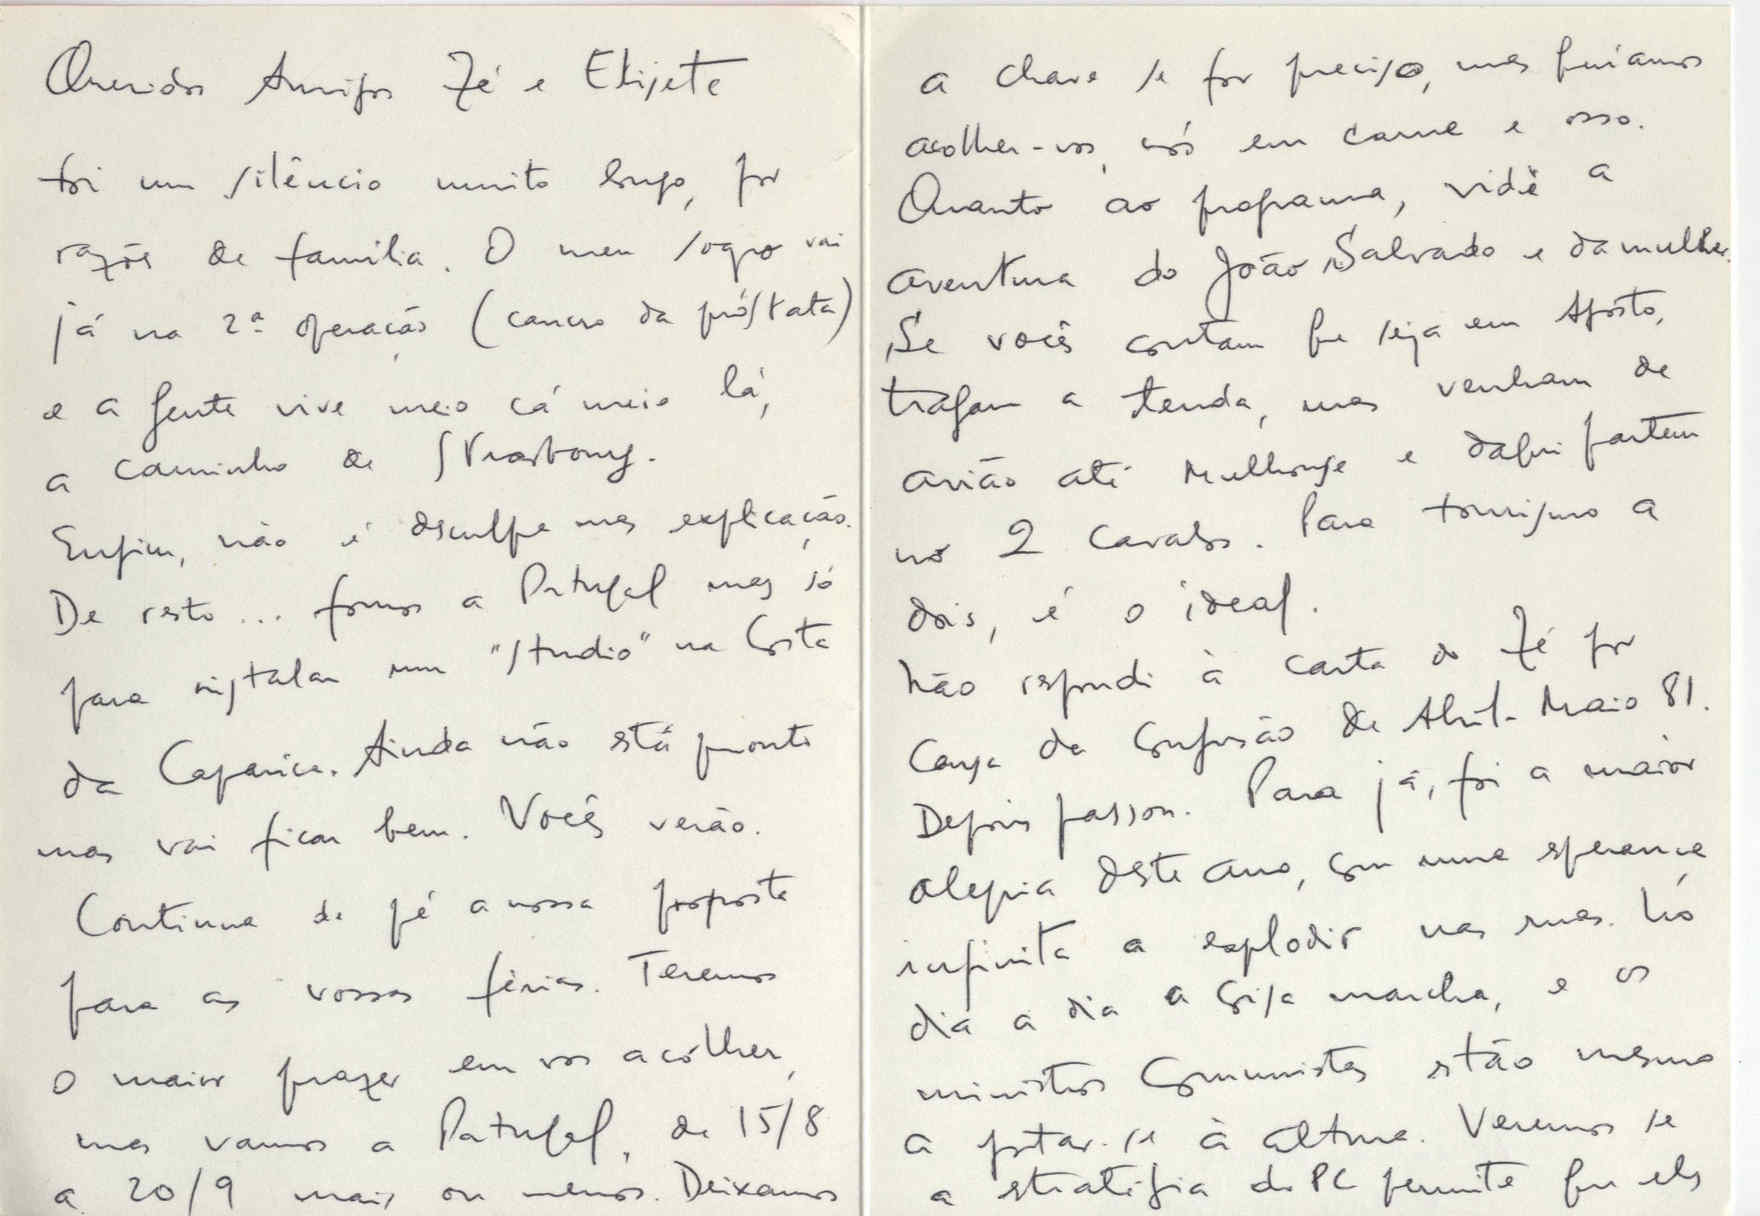 Queridos Amigos Zé e Elisete
foi um silêncio muito longo, por
razões de família. O meu sogro vai
já na 2ª operação (cancro da próstata)
e a gente vive meio cá meio lá,
a caminho de Strasbourg.
Enfim, não é desculpa mas explicação.
De resto... fomos a Portugal mas só
para instalar um "studio" na Costa
da Caparica. Ainda não está pronto
mas vai ficar bem. Vocês verão.
Continua de pé a nossa proposta
para as vossas férias. Teremos
o maior prazer em vos acolher,
mas vamos a Portugal, de 15/8
a 20/9 mais ou menos. Deixamos
a chave se for preciso, mas queríamos
acolher-vos, nós em carne e osso.
Quanto ao programa, vidé a
aventura do João Salvado e da mulher.
Se vocês contam que seja em Agosto,
tragam a tenda, mas venham de
avião até Mulhouse e daqui partem
no 2 cavalos. Para turismo a
dois, é o ideal.
Não respondi à carta do Zé por
causa da confusão de Abril-Maio 81.
Depois passou. Para já, foi a maior
alegria deste ano, com uma esperança
infinita a explodir nas ruas. No
dia a dia a coisa marcha, e os
ministros comunistas estão mesmo
a portar-se à altura. Veremos se
a estratégia do PC permite que eles